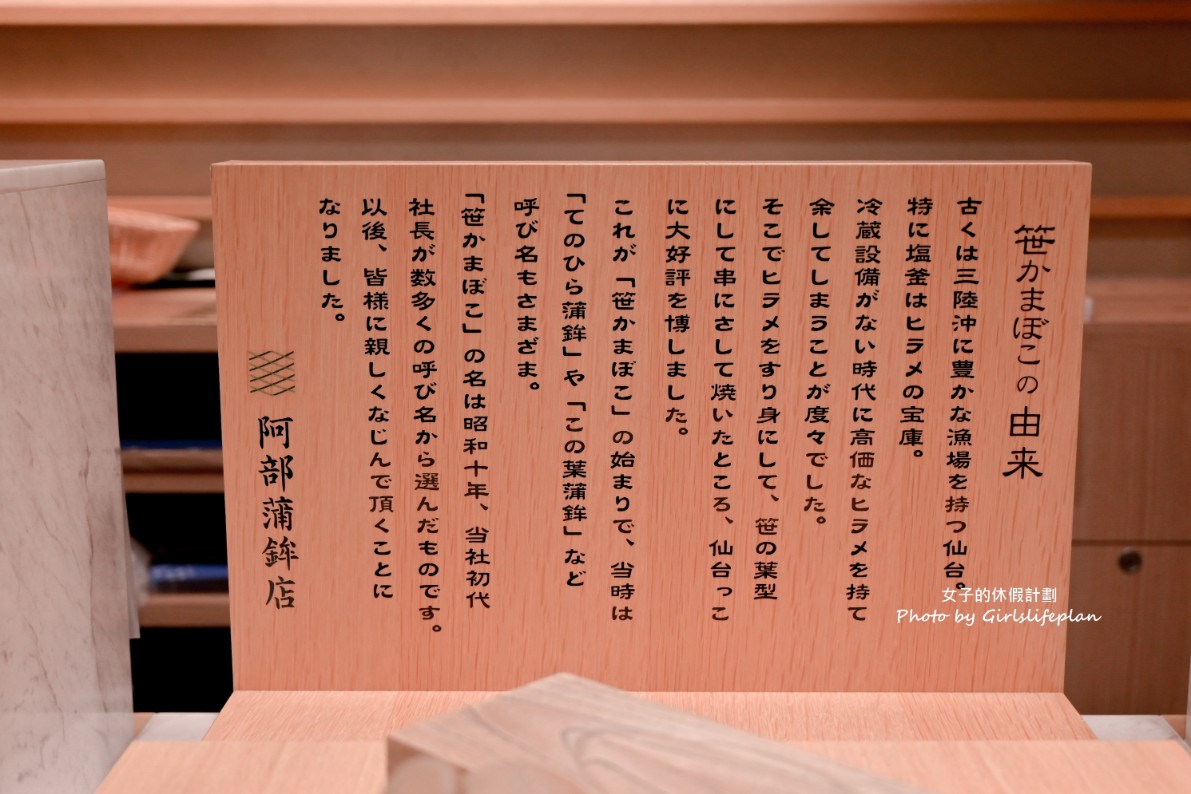 笹かまぼこの由来
古くは三陸沖に豊かな漁場を持つ仙台。
特に塩釜はヒラメの宝庫。
冷蔵設備がない時代に高価なヒラメを持て
余してしまうことが度々でした。
そこでヒラメをすり身にして、笹の葉型
にして串にさして焼いたところ、仙台っこ
に大好評を博しました。
これが「笹かまぼこ」の始まりで、当時は
「てのひら蒲鉾」や「この葉蒲鉾」など
呼び名もさまざま。
「笹かまぼこ」の名は昭和十年、当社初代
社長が数多くの呼び名から選んだものです。
以後、皆様に親しくなじんで頂くことに
なりました。
阿部蒲鉾店
女子的休假計劃
Photo by Girlslifeplan